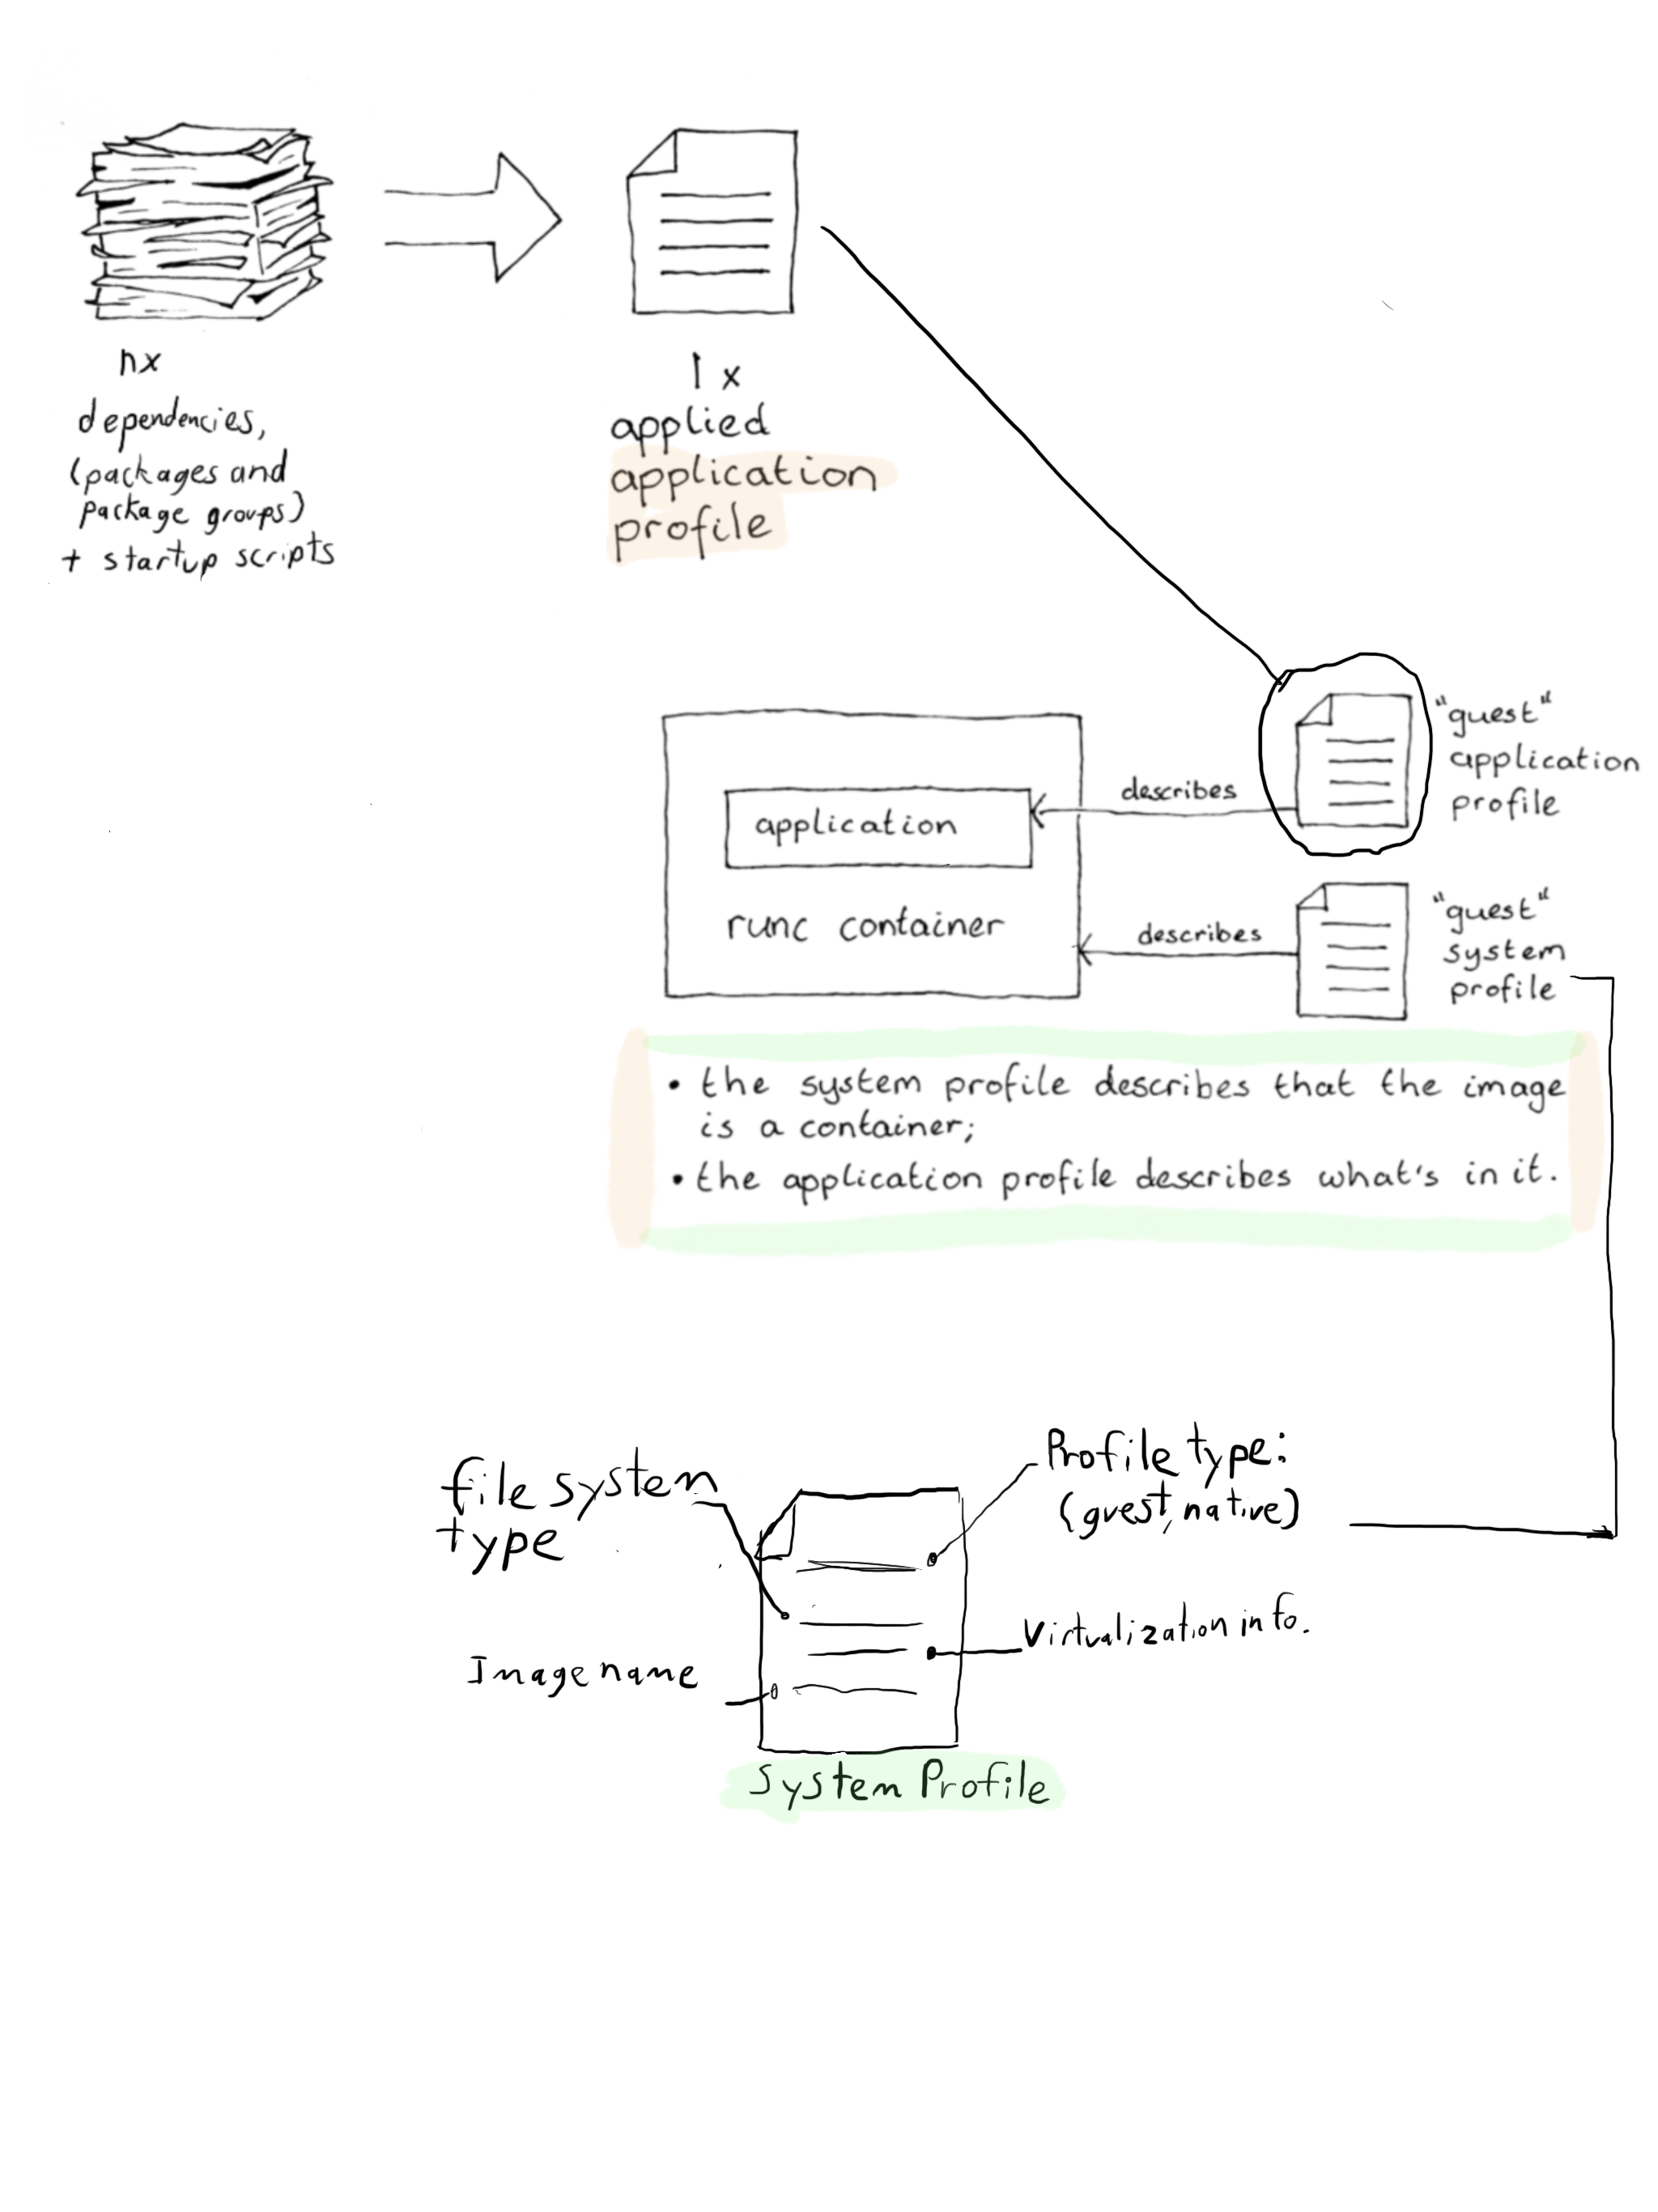 nx
dependencies,
(packages and
package groups)
+ startup scripts
1x
applied
application
profile
"guest"
application
profile
describes
application
runc container
describes
"guest"
system
profile
• the system profile describes that the image
is a container;
• the application profile describes what's in it.
file system
type
Profile type:
(guest, native)
Virtualization info.
Image name
System Profile